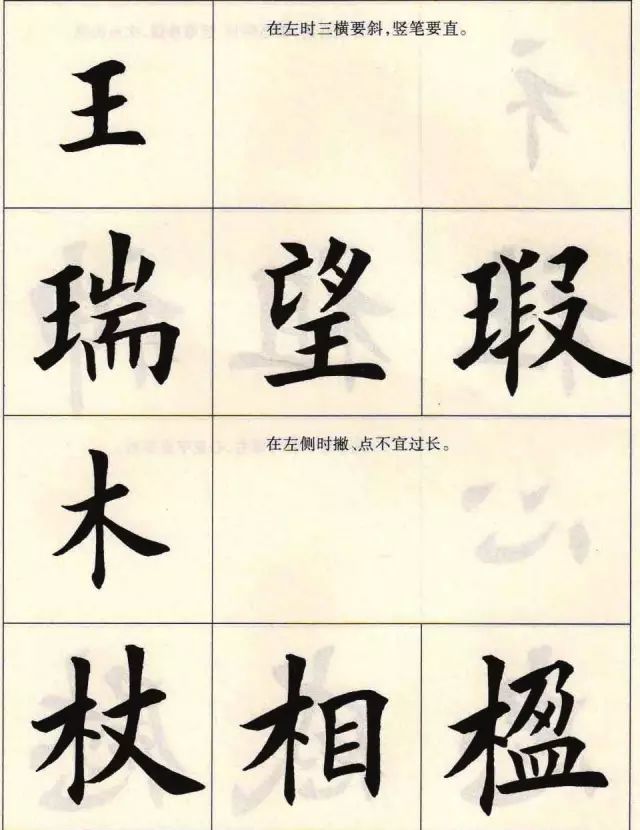 王
在左时三横要斜,竖笔要直。
瑞 望 瑕
木
在左侧时撇、点不宜过长。
杖 相 楹